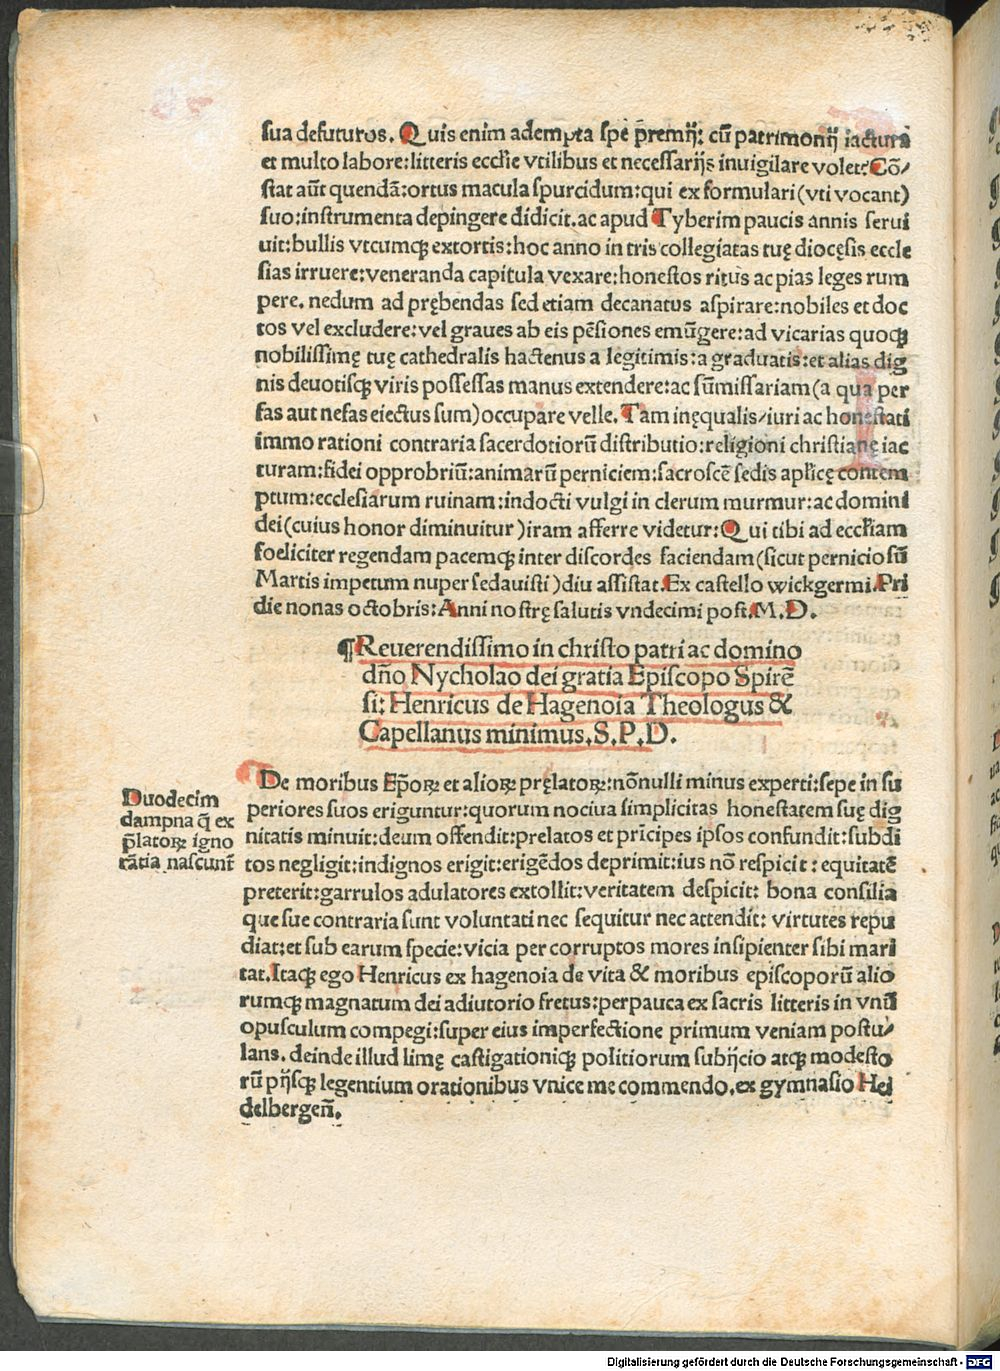 sua defuturos. Quis enim adempta spe p̄remij: cū patrimonij iactura
et multo labore:litteris eccłie vtilibus et necessarijs inuigilare volet: Cō/
stat aūt quendā:ortus macula spurcidum:qui ex formulari(vti vocant)
suo:instrumenta depingere didicit.ac apud Tyberim paucis annis serui
uit:bullis vtcumqꝫ extortis:hoc anno in tris collegiatas tuę diocęsis eccle
sias irruere:veneranda capitula vexare:honestos ritus ac pias leges rum
pere. nedum ad prębendas sed etiam decanatus aspirare:nobiles et doc
tos vel excludere:vel graues ab eis pēsiones emūgere:ad vicarias quoqꝫ
nobilissimę tuę cathedralis hactenus a legitimis:a graduatis:et alias dig
nis deuotisqꝫ viris possessas manus extendere:ac sūmissariam(a qua per
fas aut nefas eiectus sum)occupare velle. Tam inęqualis/iuri ac honestati
immo rationi contraria sacerdotiorū distributio:religioni christianę iac
turam:fidei opprobriū:animarū perniciem:sacroscē sedis apłicę contem
ptum:ecclesiarum ruinam:indocti vulgi in clerum murmur:ac domini
dei(cuius honor diminuitur)iram afferre videtur: Qui tibi ad eccłiam
foeliciter regendam pacemqꝫ inter discordes faciendam(sicut perniciosū
Martis impetum nuper sedauisti)diu assistat. Ex castello wickgermi. Pri
die nonas octobris: Anni nostrę salutis vndecimi post. M. D.
¶Reuerendissimo in christo patri ac domino
dn̄o Nycholao dei gratia Episcopo Spirē
si: Henricus de Hagenoia Theologus &
Capellanus minimus. S. P. D.
De moribus Ep̄oꝝ et alioꝝ pręlatoꝝ:nōnulli minus experti:sepe in su
periores suos eriguntur:quorum nociua simplicitas honestatem suę dig
nitatis minuit:deum offendit:prelatos et prīcipes ipsos confundit:subdi
tos negligit:indignos erigit:erigēdos deprimit:ius nō respicit:equitatē
preterit:garrulos adulatores extollit:veritatem despicit: bona consilia
que sue contraria sunt voluntati nec sequitur nec attendit: virtutes repu
diat:et sub earum specie:vicia per corruptos mores insipienter sibi mari
tat. Itaqꝫ ego Henricus ex hagenoia de vita & moribus episcoporū alio
rumqꝫ magnatum dei adiutorio fretus:perpauca ex sacris litteris in vnū
opusculum compegi:super eius imperfectione primum veniam postu/
lans. deinde illud limę castigationiqꝫ politiorum subijcio atqꝫ modesto
rū pijsqꝫ legentium orationibus vnice me commendo. ex gymnasio Hei
delbergen̄.
Duodecim
dampna q̄ ex
p̄latoꝝ igno
rātia nascunt̄
Digitalisierung gefördert durch die Deutsche Forschungsgemeinschaft - DFG